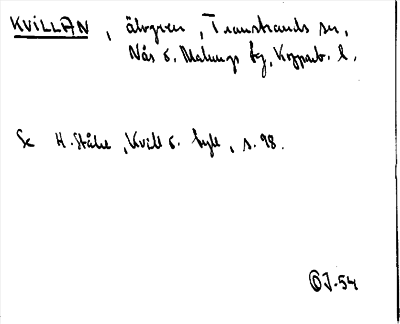 KVILLAN, älvgren, Transtrands sn,
Nås o. Malungs fg, Kopparb. l.
Se H. Ståhl, Kvill o. tyll, s. 98.
ÖJ-54